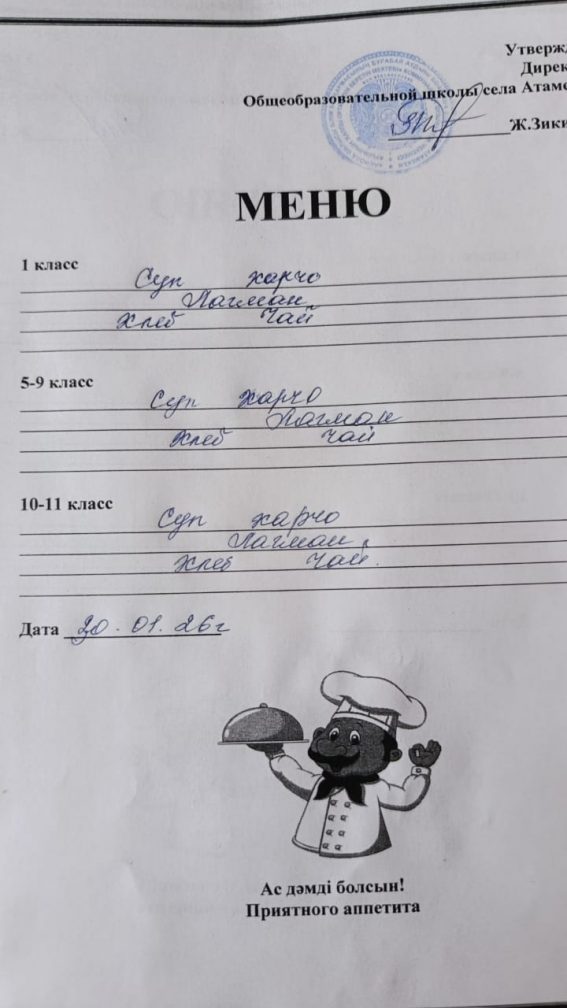 Утверж
Дирек
Общеобразовательной школы села Атам
Ж.Зики
МЕНЮ
1 класс
Суп харчо
Лагман
Хлеб Чай
5-9 класс
Суп харчо
Лагман
Хлеб чай
10-11 класс
Суп харчо
Лагман
Хлеб Чай.
Дата 20.01.26г
Ас дәмді болсын!
Приятного аппетита